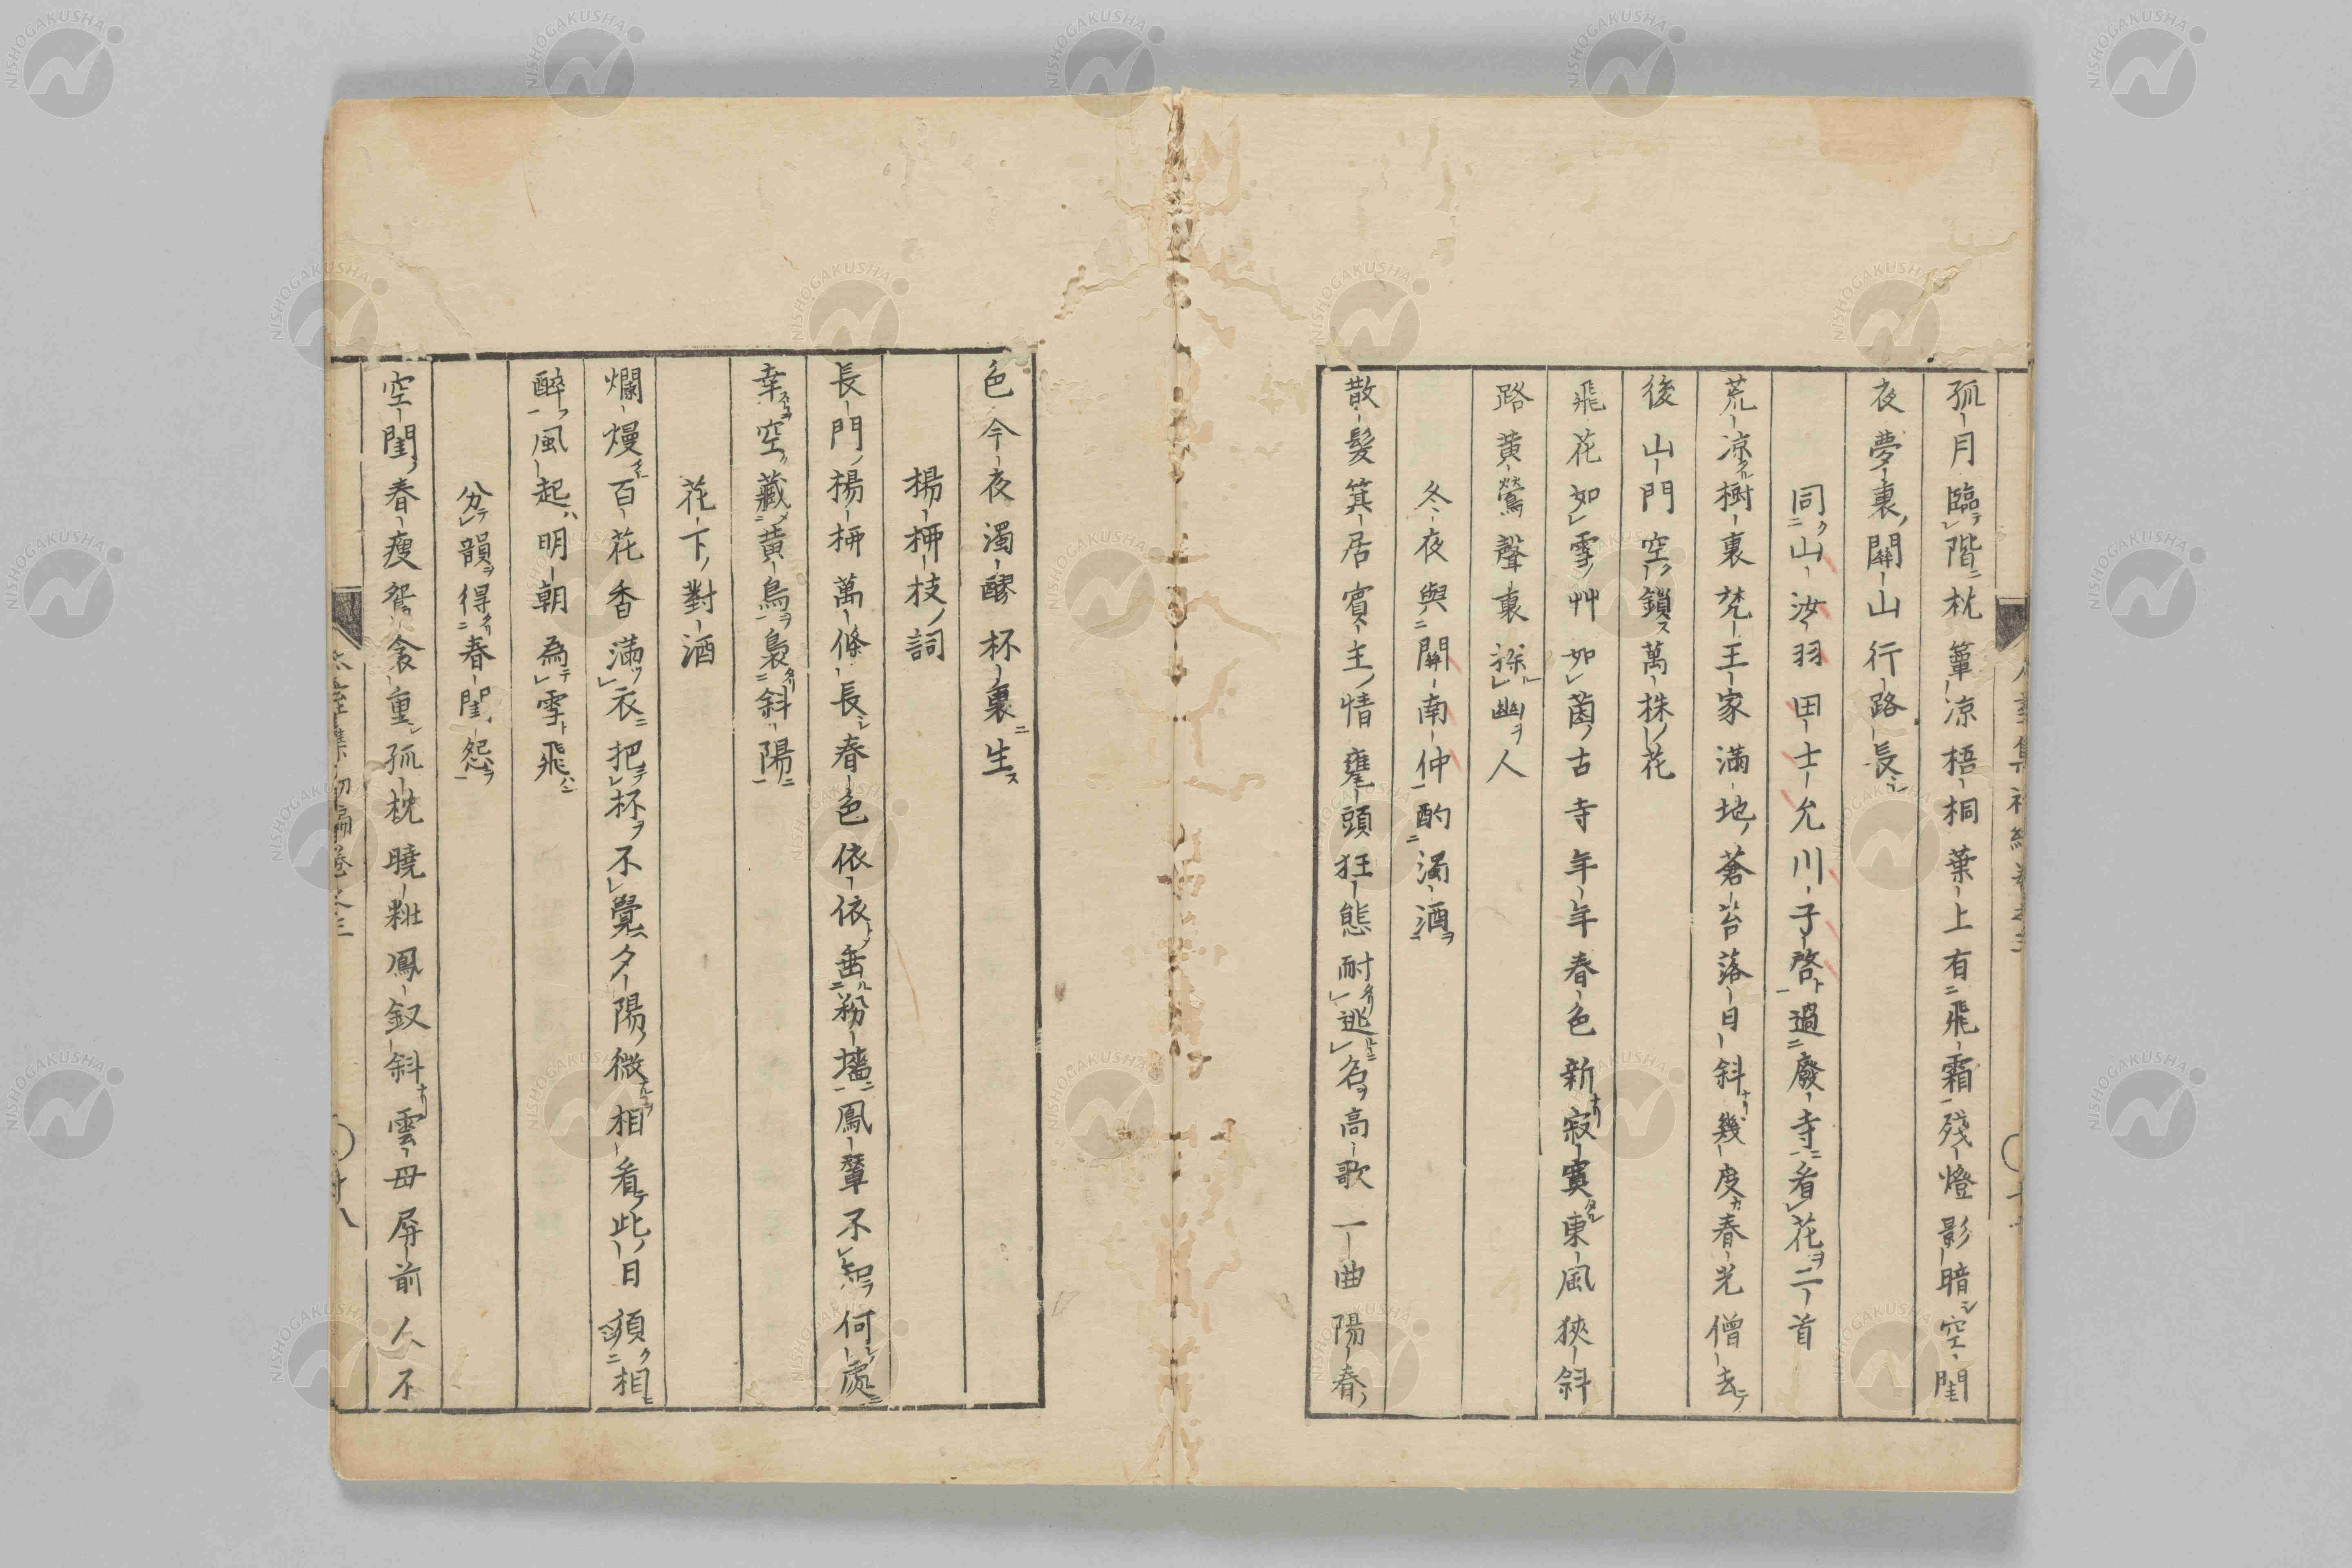 孤月臨階枕簟凉梧桐葉上有飛霜殘燈影暗空閨
夜夢裏關山行路長
同山汝羽田士允川子啓過廢寺看花二首
荒凉樹裏梵王家滿地蒼苔落日斜幾度春光僧去
後山門空鎖萬株花
飛花如雪艸如茵古寺年年春色新寂寞東風狹斜
路黄鶯聲裏送幽人
冬夜與關南仲酌濁酒
散髮箕居賓主情甕頭狂態耐逃名高歌一曲陽春
色今夜濁醪杯裏生
楊栁枝詞
長門楊栁萬條長春色依依垂粉墻鳳輦不知何處
幸空藏黄鳥裊斜陽
花下對酒
爛熳百花香滿衣把杯不覺夕陽微相看此日須相
醉風起明朝為雪飛
分韻得春閨怨
空閨春瘦鴛衾重孤枕曉粧鳳釵斜雲母屏前人不
NISHOGAKUSHA